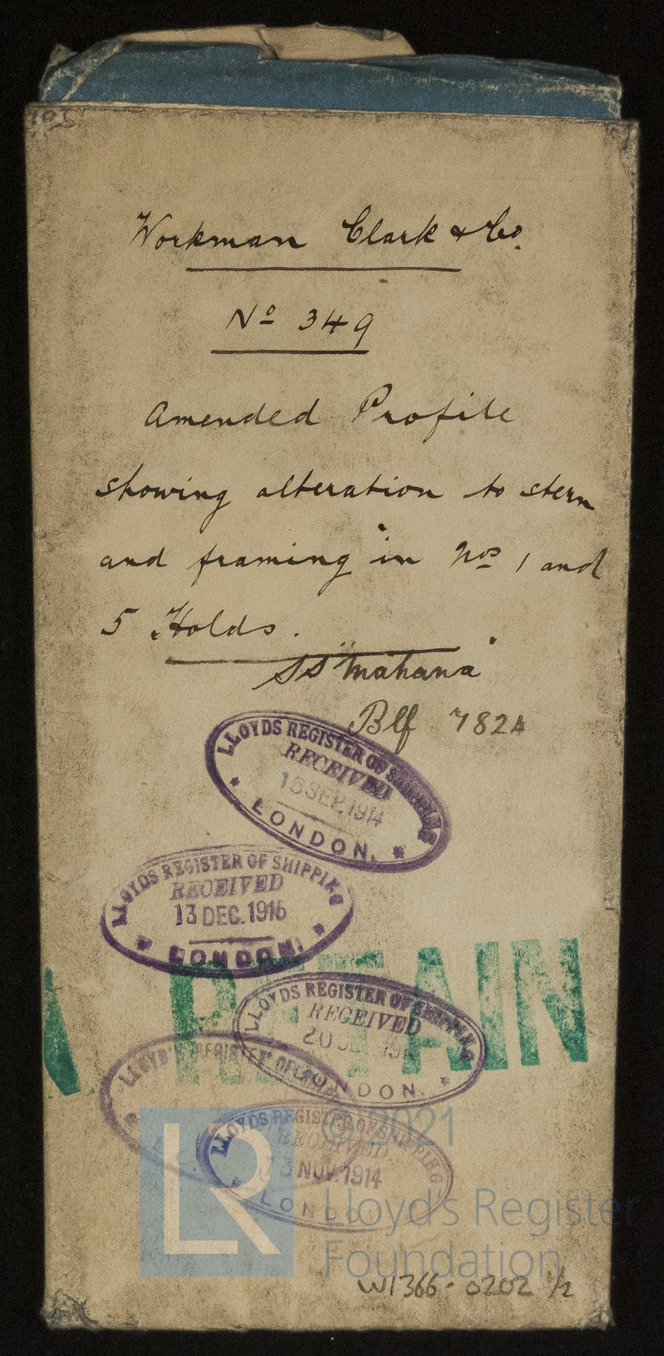 Workman Clark & Co.
No 349
Amended Profile
showing alteration to stern
and framing in Nos 1 and
5 Holds.
SS "Mahana"
Blf 7824
LLOYDS REGISTER OF SHIPPING
RECEIVED
SEP. 1914
LONDON.
LLOYDS REGISTER OF SHIPPING
RECEIVED
13 DEC. 1916
LONDON.
RETAIN
LLOYDS REGISTER OF SHIPPING
RECEIVED
20
LONDON.
LLOYD'S REGISTER OF
LLOYDS REGISTER OF SHIPPING
RECEIVED
3 NOV. 1914
LONDON
LR
© 2021
Lloyd's Register
Foundation
W1366-0202 1/2